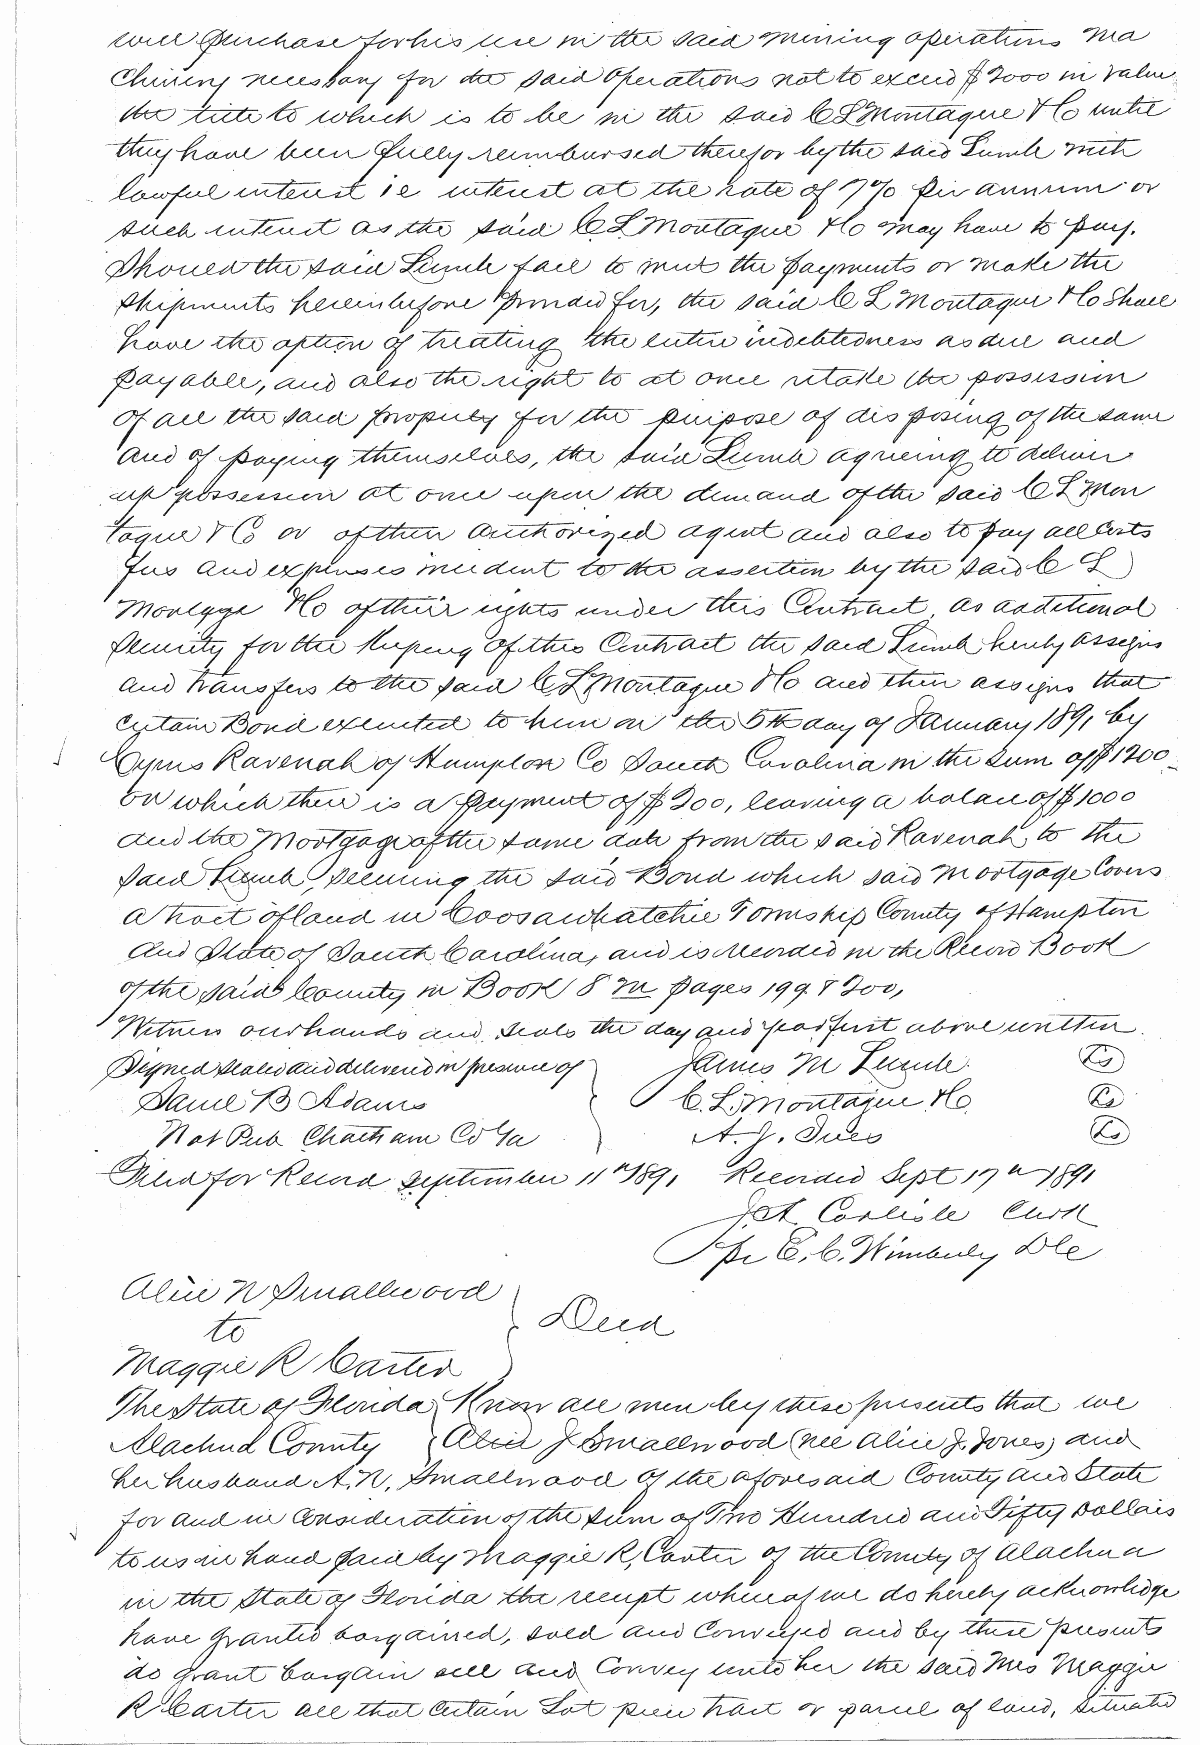 will purchase for his use in the said mining operations Ma
chinery necessary for the said operations not to exceed $2000 in value
the title to which is to be in the said C L Montague & Co until
they have been fully reimbursed therefor by the said Lumb with
lawful interest i e interest at the rate of 7% per annum or
such interest as the said C. L. Montague & Co may have to pay.
Should the said Lumb fail to meet the payments or make the
shipments hereinbefore provided for, the said C L Montague & Co shall
have the option of treating the entire indebtedness as due and
payable, and also the right to at once retake the possession
of all the said property for the purpose of disposing of the same
and of paying themselves, the said Lumb agreeing to deliver
up possession at once upon the demand of the said C L Mon
tague & Co or of their authorized agent and also to pay all costs
fees and expenses incident to the assertion by the said C L
& Co of their rights under this Contract, as additional
security for the keeping of this Contract the said Lumb hereby assigns
and transfers to the said C L Montague & Co and their assigns that
certain Bond executed to him on the 5th day of January 1891 by
Cyrus Ravenah of Hampton Co South Carolina in the sum of $1200
on which there is a payment of $200, leaving a balance of $1000
and the Mortgage of the same date from the said Ravenah to the
said Lumb, securing the said Bond which said Mortgage Covers
a tract of land in Coosawhatchie Township County of Hampton
and State of South Carolina, and is recorded in the Record Book
of the said County in Book 8 M pages 199 & 200,
Witness our hands and seals the day and year first above written
Signed sealed and delivered in presence of James M Lumb LS
Saml B Adams C. L. Montague & Co LS
Not Pub Chatham Co Ga A. J. Ives LS
Filed for Record September 11th 1891 Recorded Sept 17th 1891
J A Carlisle Clerk
Per E. C. Wimberly D C
Alice N Smallwood
to Deed
Maggie R Carter
The State of Florida Know all men by these presents that we
Alachua County Alice J Smallwood (nee Alice J. Jones) and
her husband A. N. Smallwood of the aforesaid County and State
for and in consideration of the sum of Two Hundred and Fifty Dollars
to us in hand paid by Maggie R, Carter of the County of Alachua
in the State of Florida the receipt whereof we do hereby acknowledge
have granted bargained, sold and Conveyed and by these presents
do grant bargain sell and Convey unto her the said Mrs Maggie
R Carter all that certain Lot piece tract or parcel of land, situated